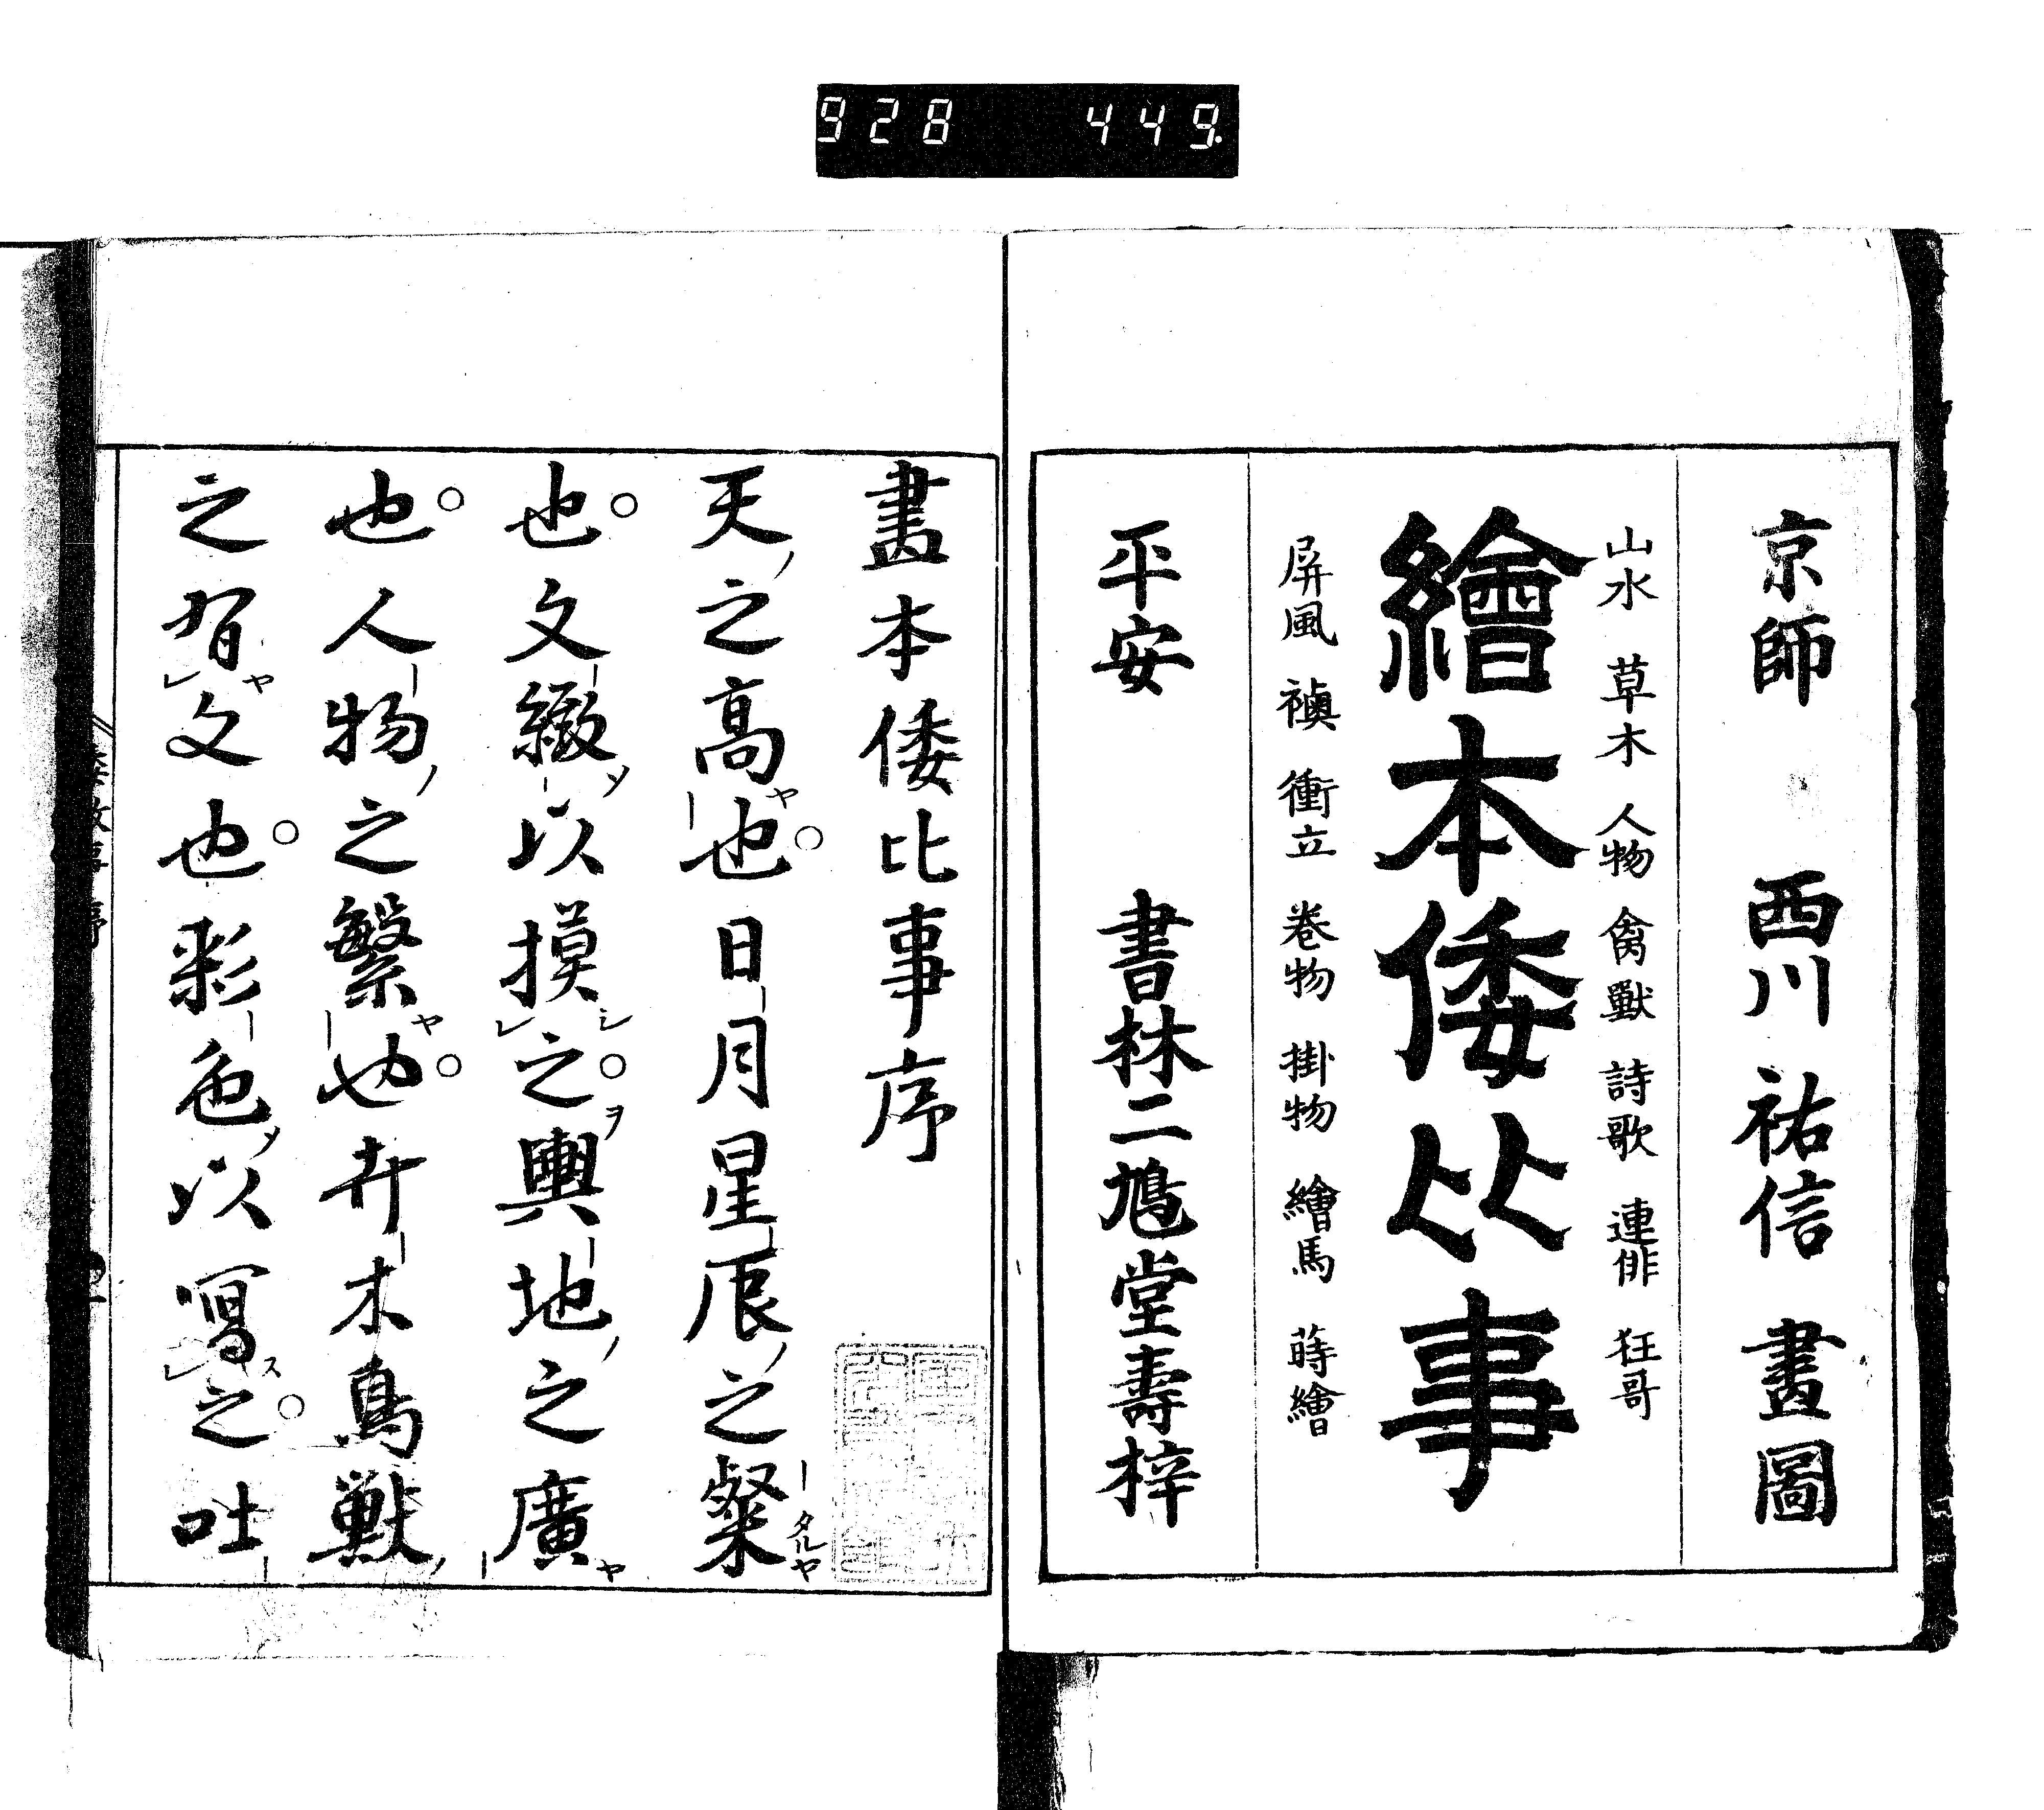 928 449
京師 西川祐信畫圖
山水 草木 人物 禽獸 詩歌 連俳 狂哥
繪本倭比事
屏風 襖 衝立 巻物 掛物 繪馬 蒔繪
平安 書林二鳩堂壽梓
畫本倭比事序
天ノ之高ヤ也。日月星辰ノ之粲タルヤ
也。文緻ソ以摸シ之ヲ。輿地ノ之廣ヤ
也。人物ノ之繁ヤ也。卉木鳥獣ノ
之有ヤ文也。彩色メ以寫ス之。吐